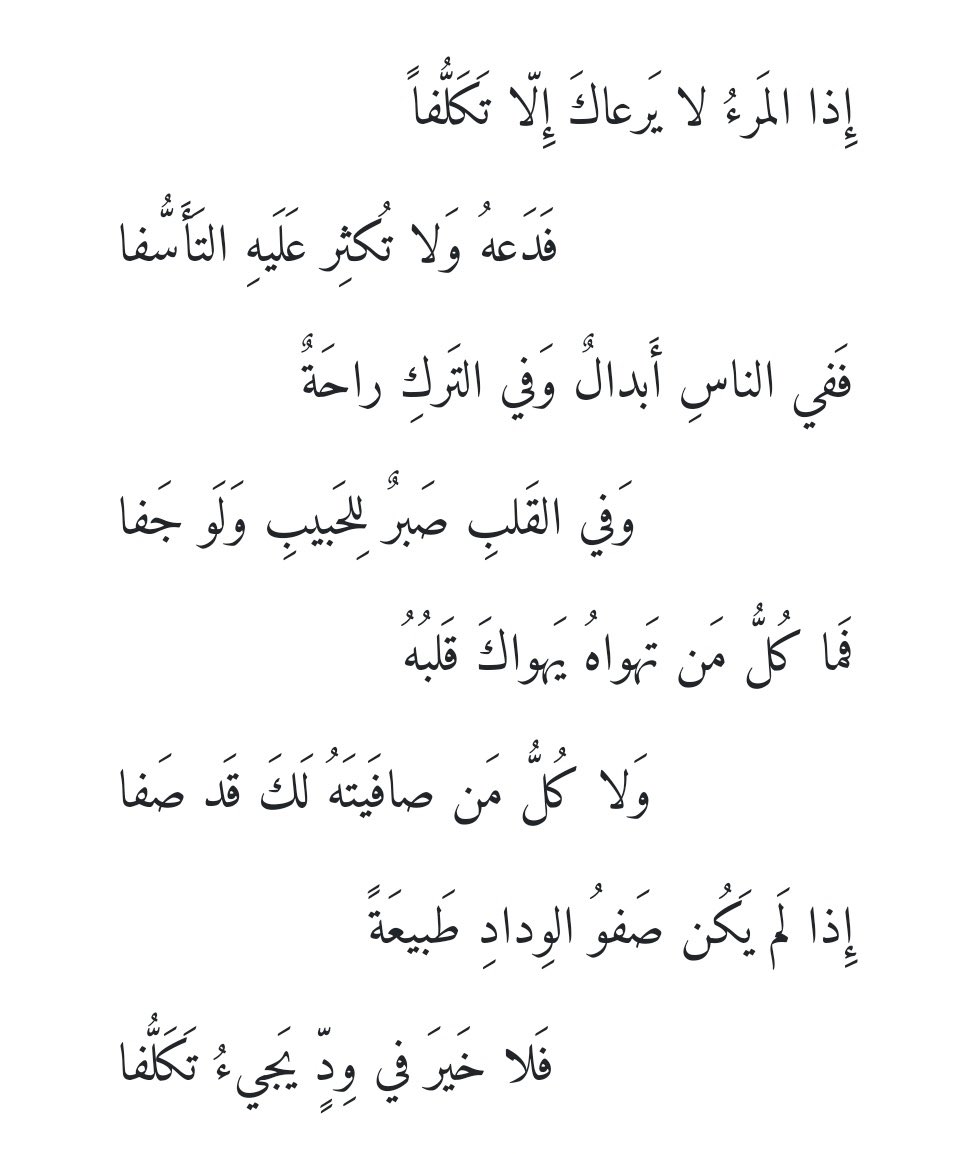 إِذا المَرءُ لا يَرعاكَ إِلّا تَكَلُّفاً
فَدَعهُ وَلا تُكثِر عَلَيهِ التَأَسُّفا
فَفي الناسِ أَبدالٌ وَفي التَركِ راحَةٌ
وَفي القَلبِ صَبرٌ لِلحَبيبِ وَلَو جَفا
فَما كُلُّ مَن تَهواهُ يَهواكَ قَلبُهُ
وَلا كُلُّ مَن صافَيتَهُ لَكَ قَد صَفا
إِذا لَم يَكُن صَفوُ الوِدادِ طَبيعَةً
فَلا خَيرَ في وِدٍّ يَجيءُ تَكَلُّفا